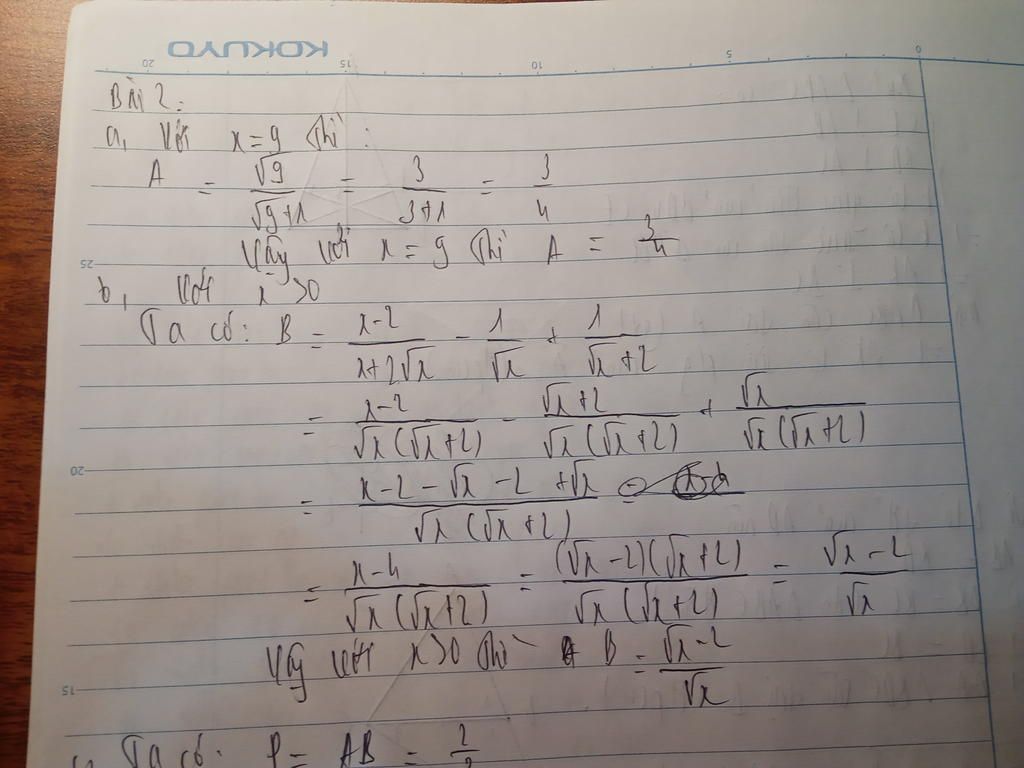 KOKUYO
0 5 10 15 20
Bài 2:
a, Với x = 9 thì:
A = √9/(√9+1) = 3/(3+1) = 3/4
Vậy với x = 9 thì A = 3/4
25
b, Với x > 0
Ta có: B = (x-2)/(x+2√x) - 1/√x + 1/(√x+2)
= (x-2)/(√x(√x+2)) - (√x+2)/(√x(√x+2)) + √x/(√x(√x+2))
20
= (x-2-√x-2+√x)/(√x(√x+2))
= (x-4)/(√x(√x+2)) = (√x-2)(√x+2)/(√x(√x+2)) = (√x-2)/√x
Vậy với x>0 thì B = (√x-2)/√x
15
Ta có: P = AB = 2